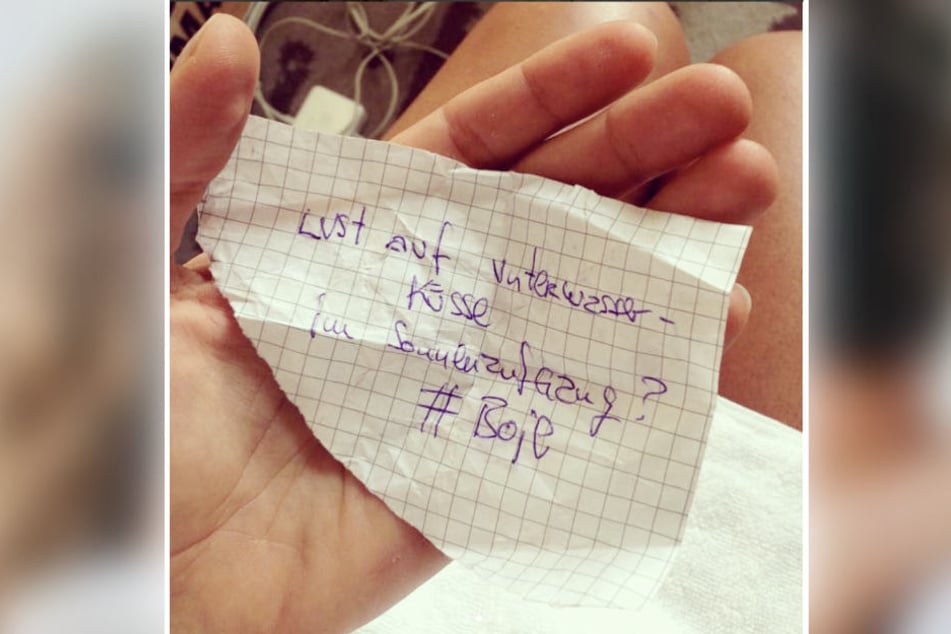 Lust auf Unterwasser-
Küsse
im Sonnenaufgang?
# Boje